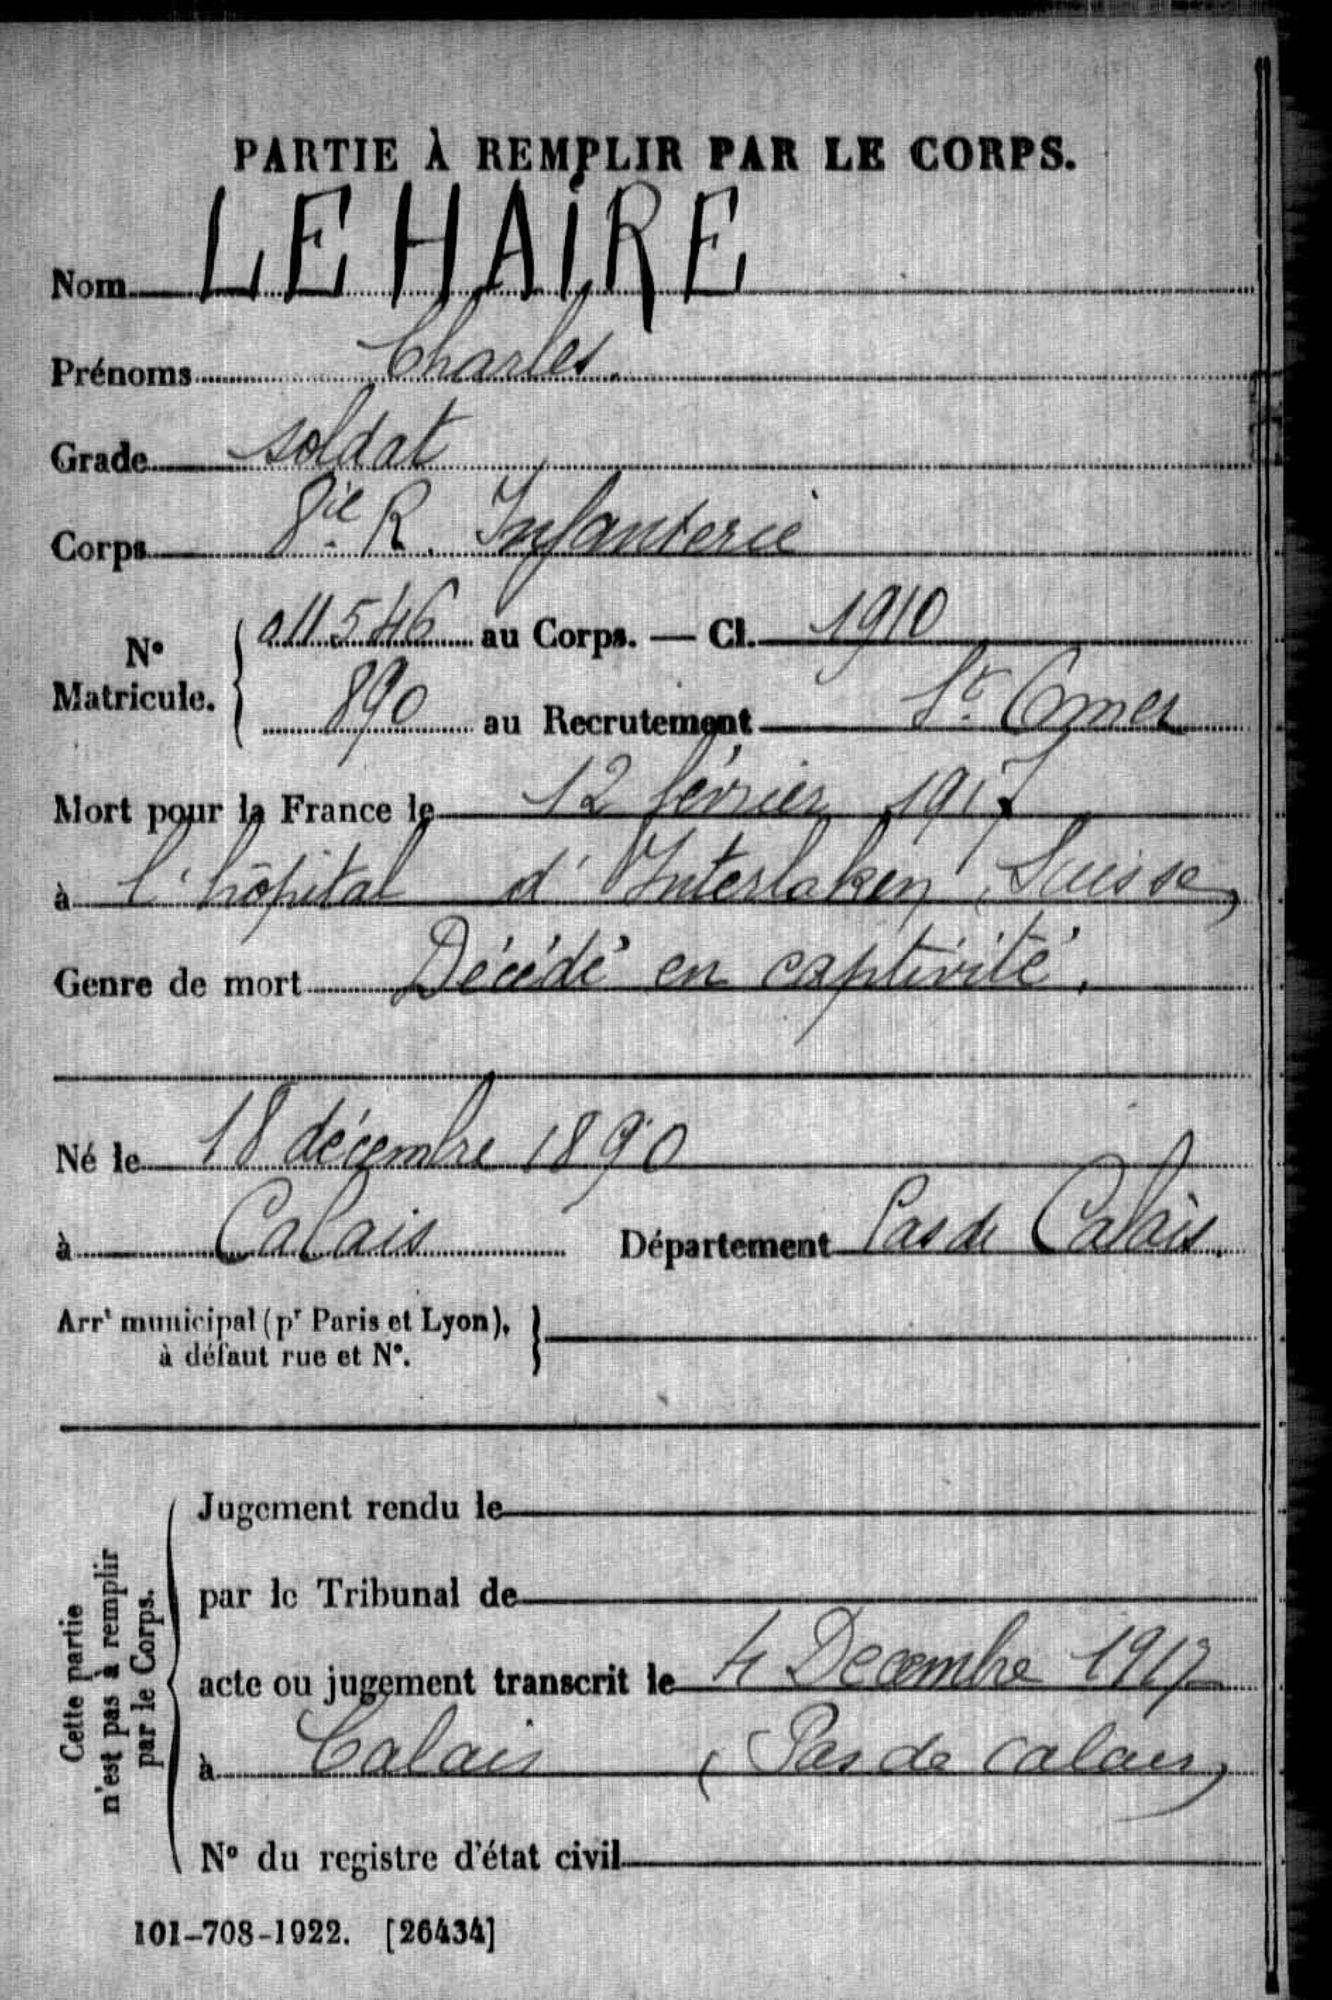 PARTIE À REMPLIR PAR LE CORPS.
Nom LEHAIRE
Prénoms Charles.
Grade soldat
Corps 8ie R. Infanterie
N° Matricule. 011546 au Corps. — Cl. 1910
890 au Recrutement St. Omer
Mort pour la France le 12 février 1917
à l'hôpital d'Interlaken (Suisse)
Genre de mort Décédé en captivité.
Né le 18 décembre 1890
à Calais Département Pas de Calais.
Arrt municipal (pr Paris et Lyon),
à défaut rue et N°.
Cette partie
n'est pas à remplir
par le Corps.
Jugement rendu le
par le Tribunal de
acte ou jugement transcrit le 4 Decembre 1917
à Calais (Pas de Calais)
N° du registre d'état civil
101-708-1922. [26434]